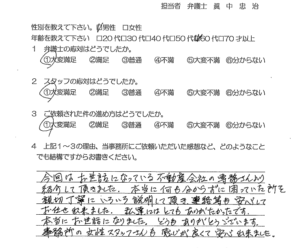 担当者 弁護士 眞中 忠治
性別を教えて下さい。 男性 □女性
年齢を教えて下さい □20代□30代□40代□50代 60代□70才以上
1 弁護士の応対はどうでしたか。
①大変満足 ②満足 ③普通 ④不満 ⑤大変不満 ⑥分からない
2 スタッフの応対はどうでしたか。
①大変満足 ②満足 ③普通 ④不満 ⑤大変不満 ⑥分からない
3 ご依頼された件の進め方はどうでしたか。
①大変満足 ②満足 ③普通 ④不満 ⑤大変不満 ⑥分からない
4 上記1~3の理由、当事務所にご依頼いただいた感想など、どのようなこと
でも結構ですからお書きください。
今回はお世話になっている不動産会社の専務さんより
紹介して頂きました。本当に何も分からずに困っていた所を
親切丁寧にいろいろ説明して頂き 安心して
お任せ出来ました。 とてもありがたかったです。
本当にお世話になりました。どうもありがとうございます。
事務所の女性スタッフさんも感じが良くて安心出来ました。